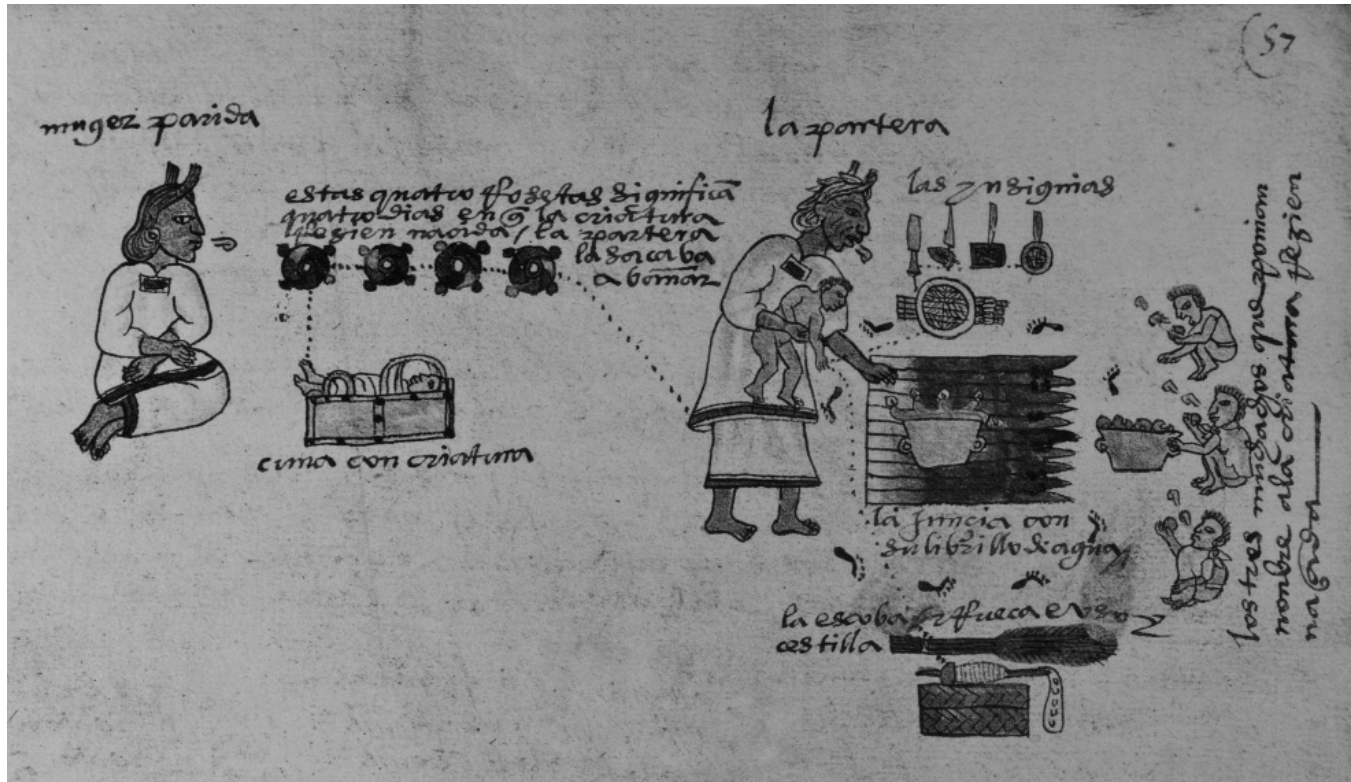 57
muger parida
la partera
estas quatro Rosetas significã
quatro dias en q̃ la criatura
Rezien nacida / la partera
la sacaba
a bañar
las ynsignias
cuna con criatura
la juncia con
su librillo de agua
la escoba / y Rueca e
cestilla
los tres mochachos que nonbran
nonbre a la criatura rezien
nacida